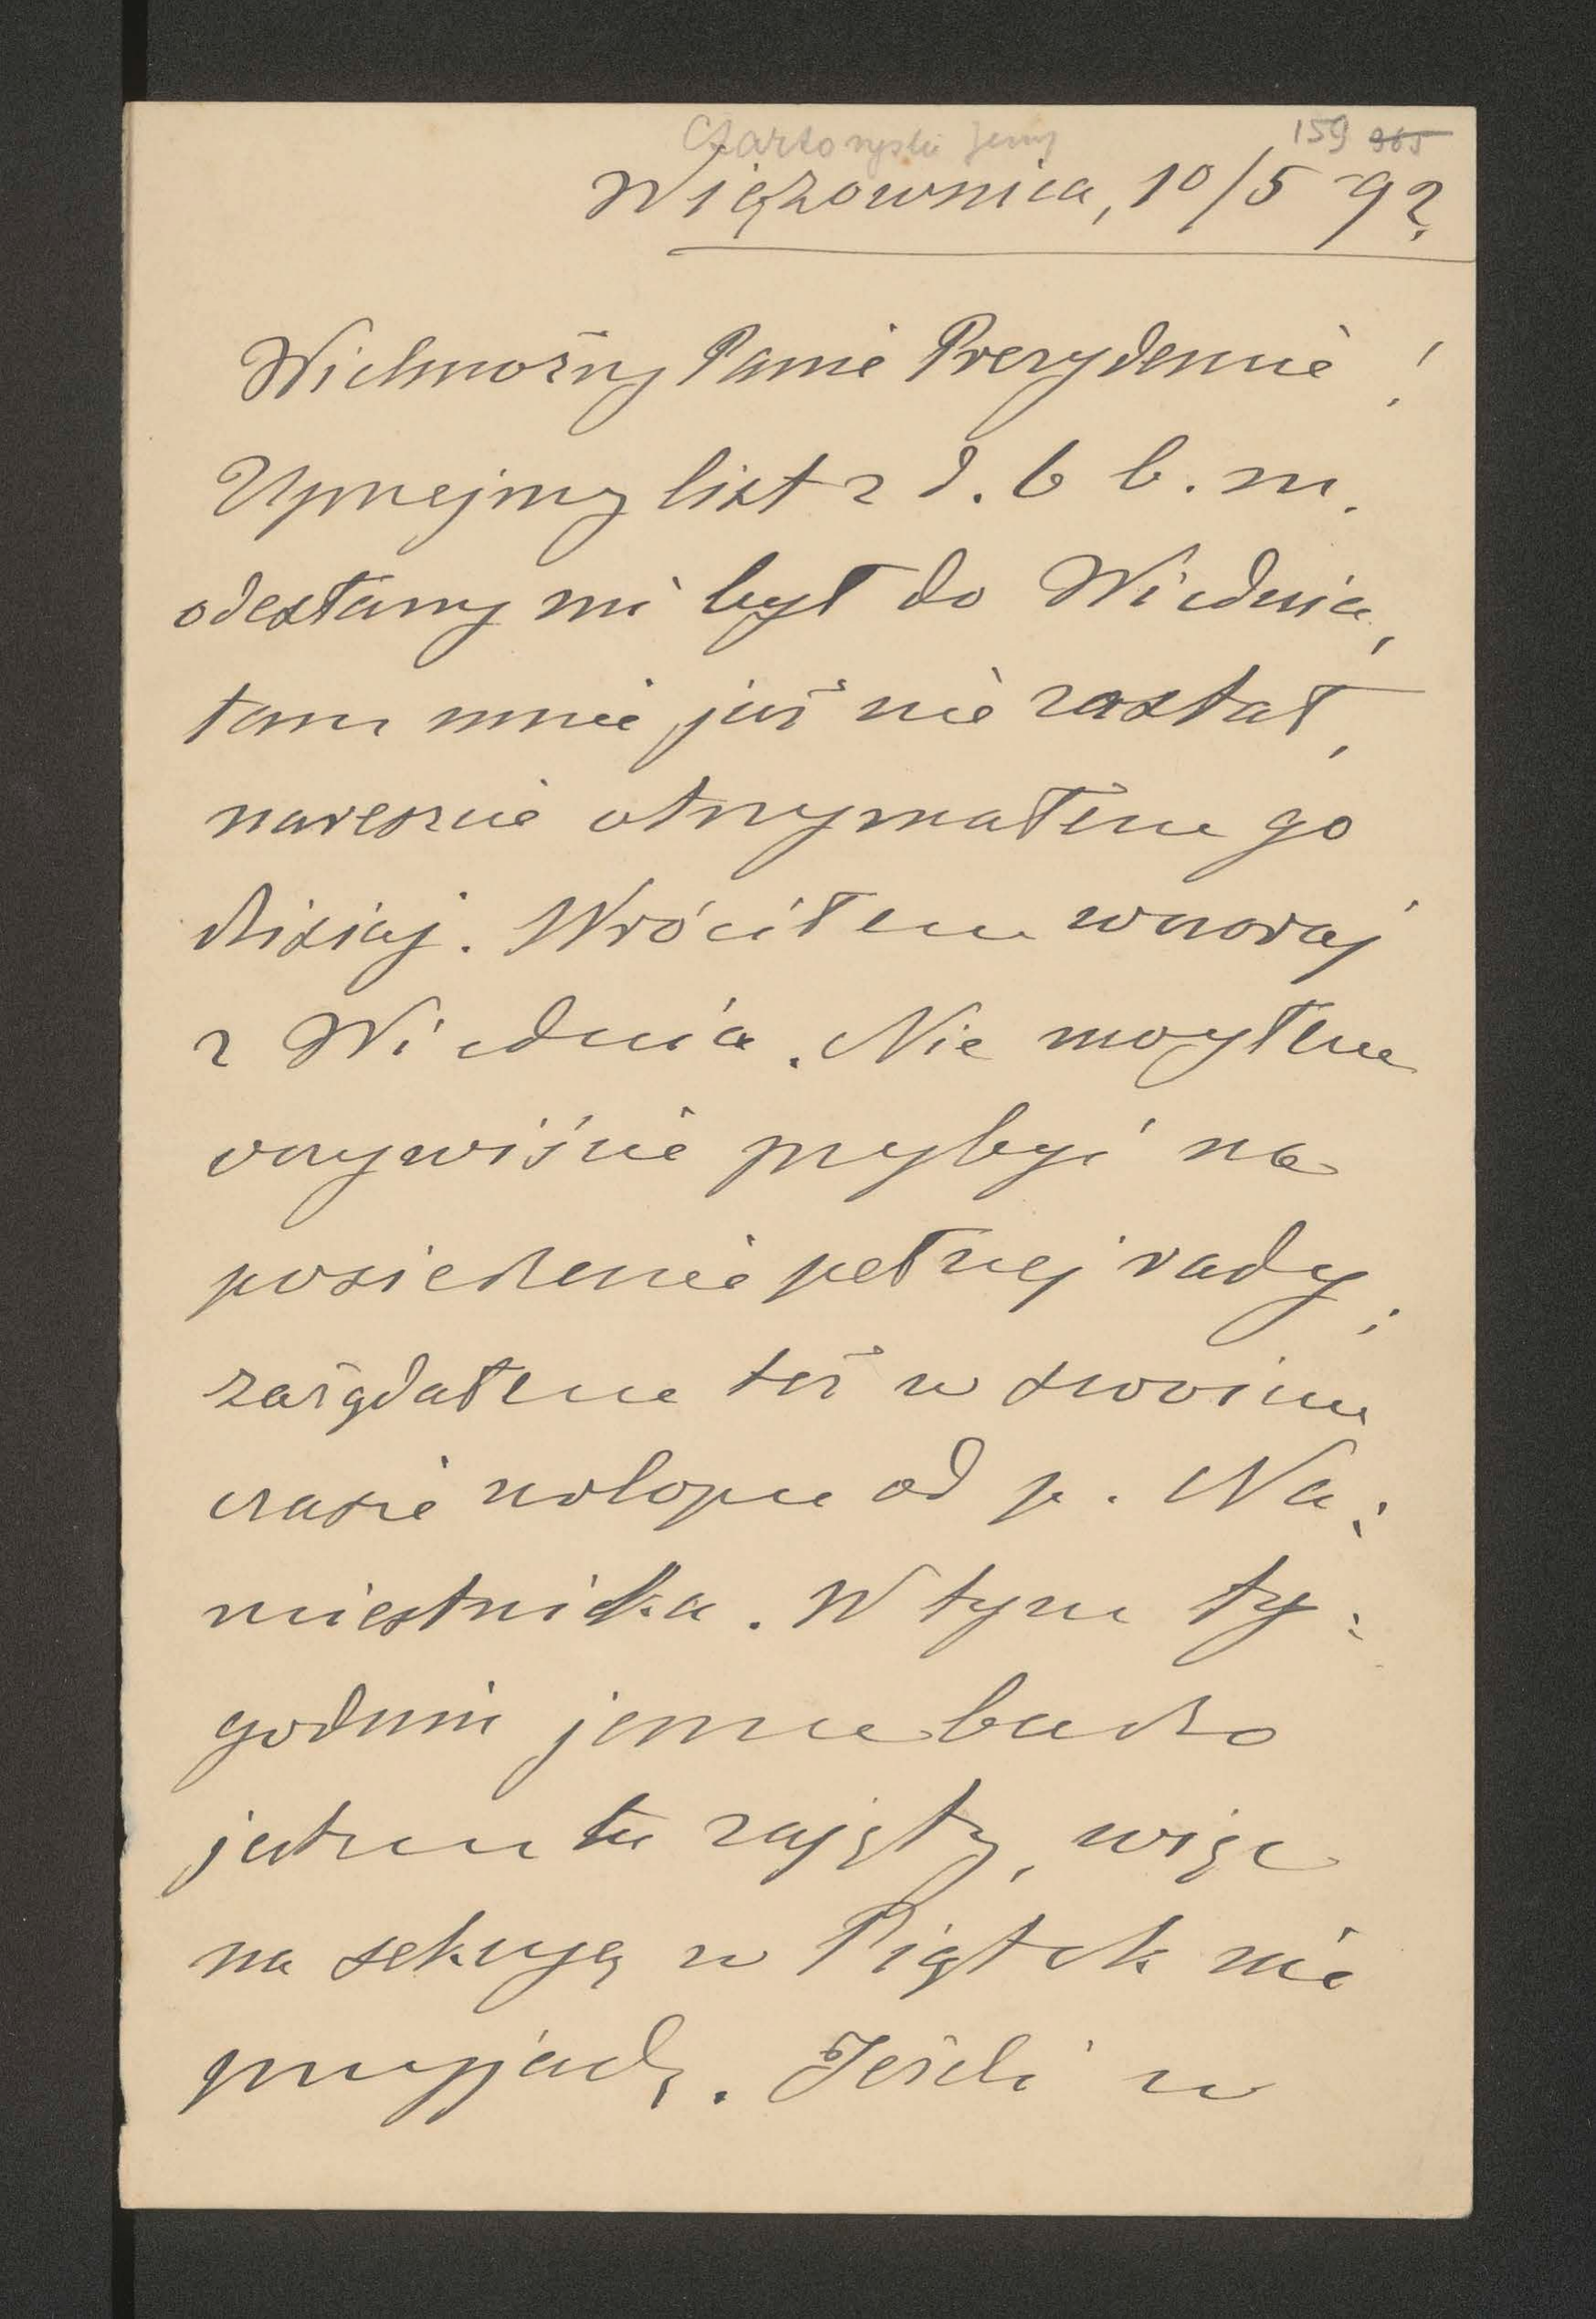 Czartoryski Jerzy
159 365
Wiązownica, 10/5 92.
Wielmożny Panie Prezydencie!
Uprzejmy list z d. 6 b. m.
odesłany mi był do Wiednia,
tam mnie już nie zastał,
nareszcie otrzymałem go
dzisiaj. Wróciłem wczoraj
z Wiednia. Nie mogłem
oczywiście przybyć na
posiedzenie pełnej rady;
zażądałem też w swoim
czasie urlopu od p. Na:
miestnika. W tym ty:
godniu jeszcze bardzo
jestem tu zajęty, więc
na sekcyę w Piątek nie
przyjadę. Jeżeli w